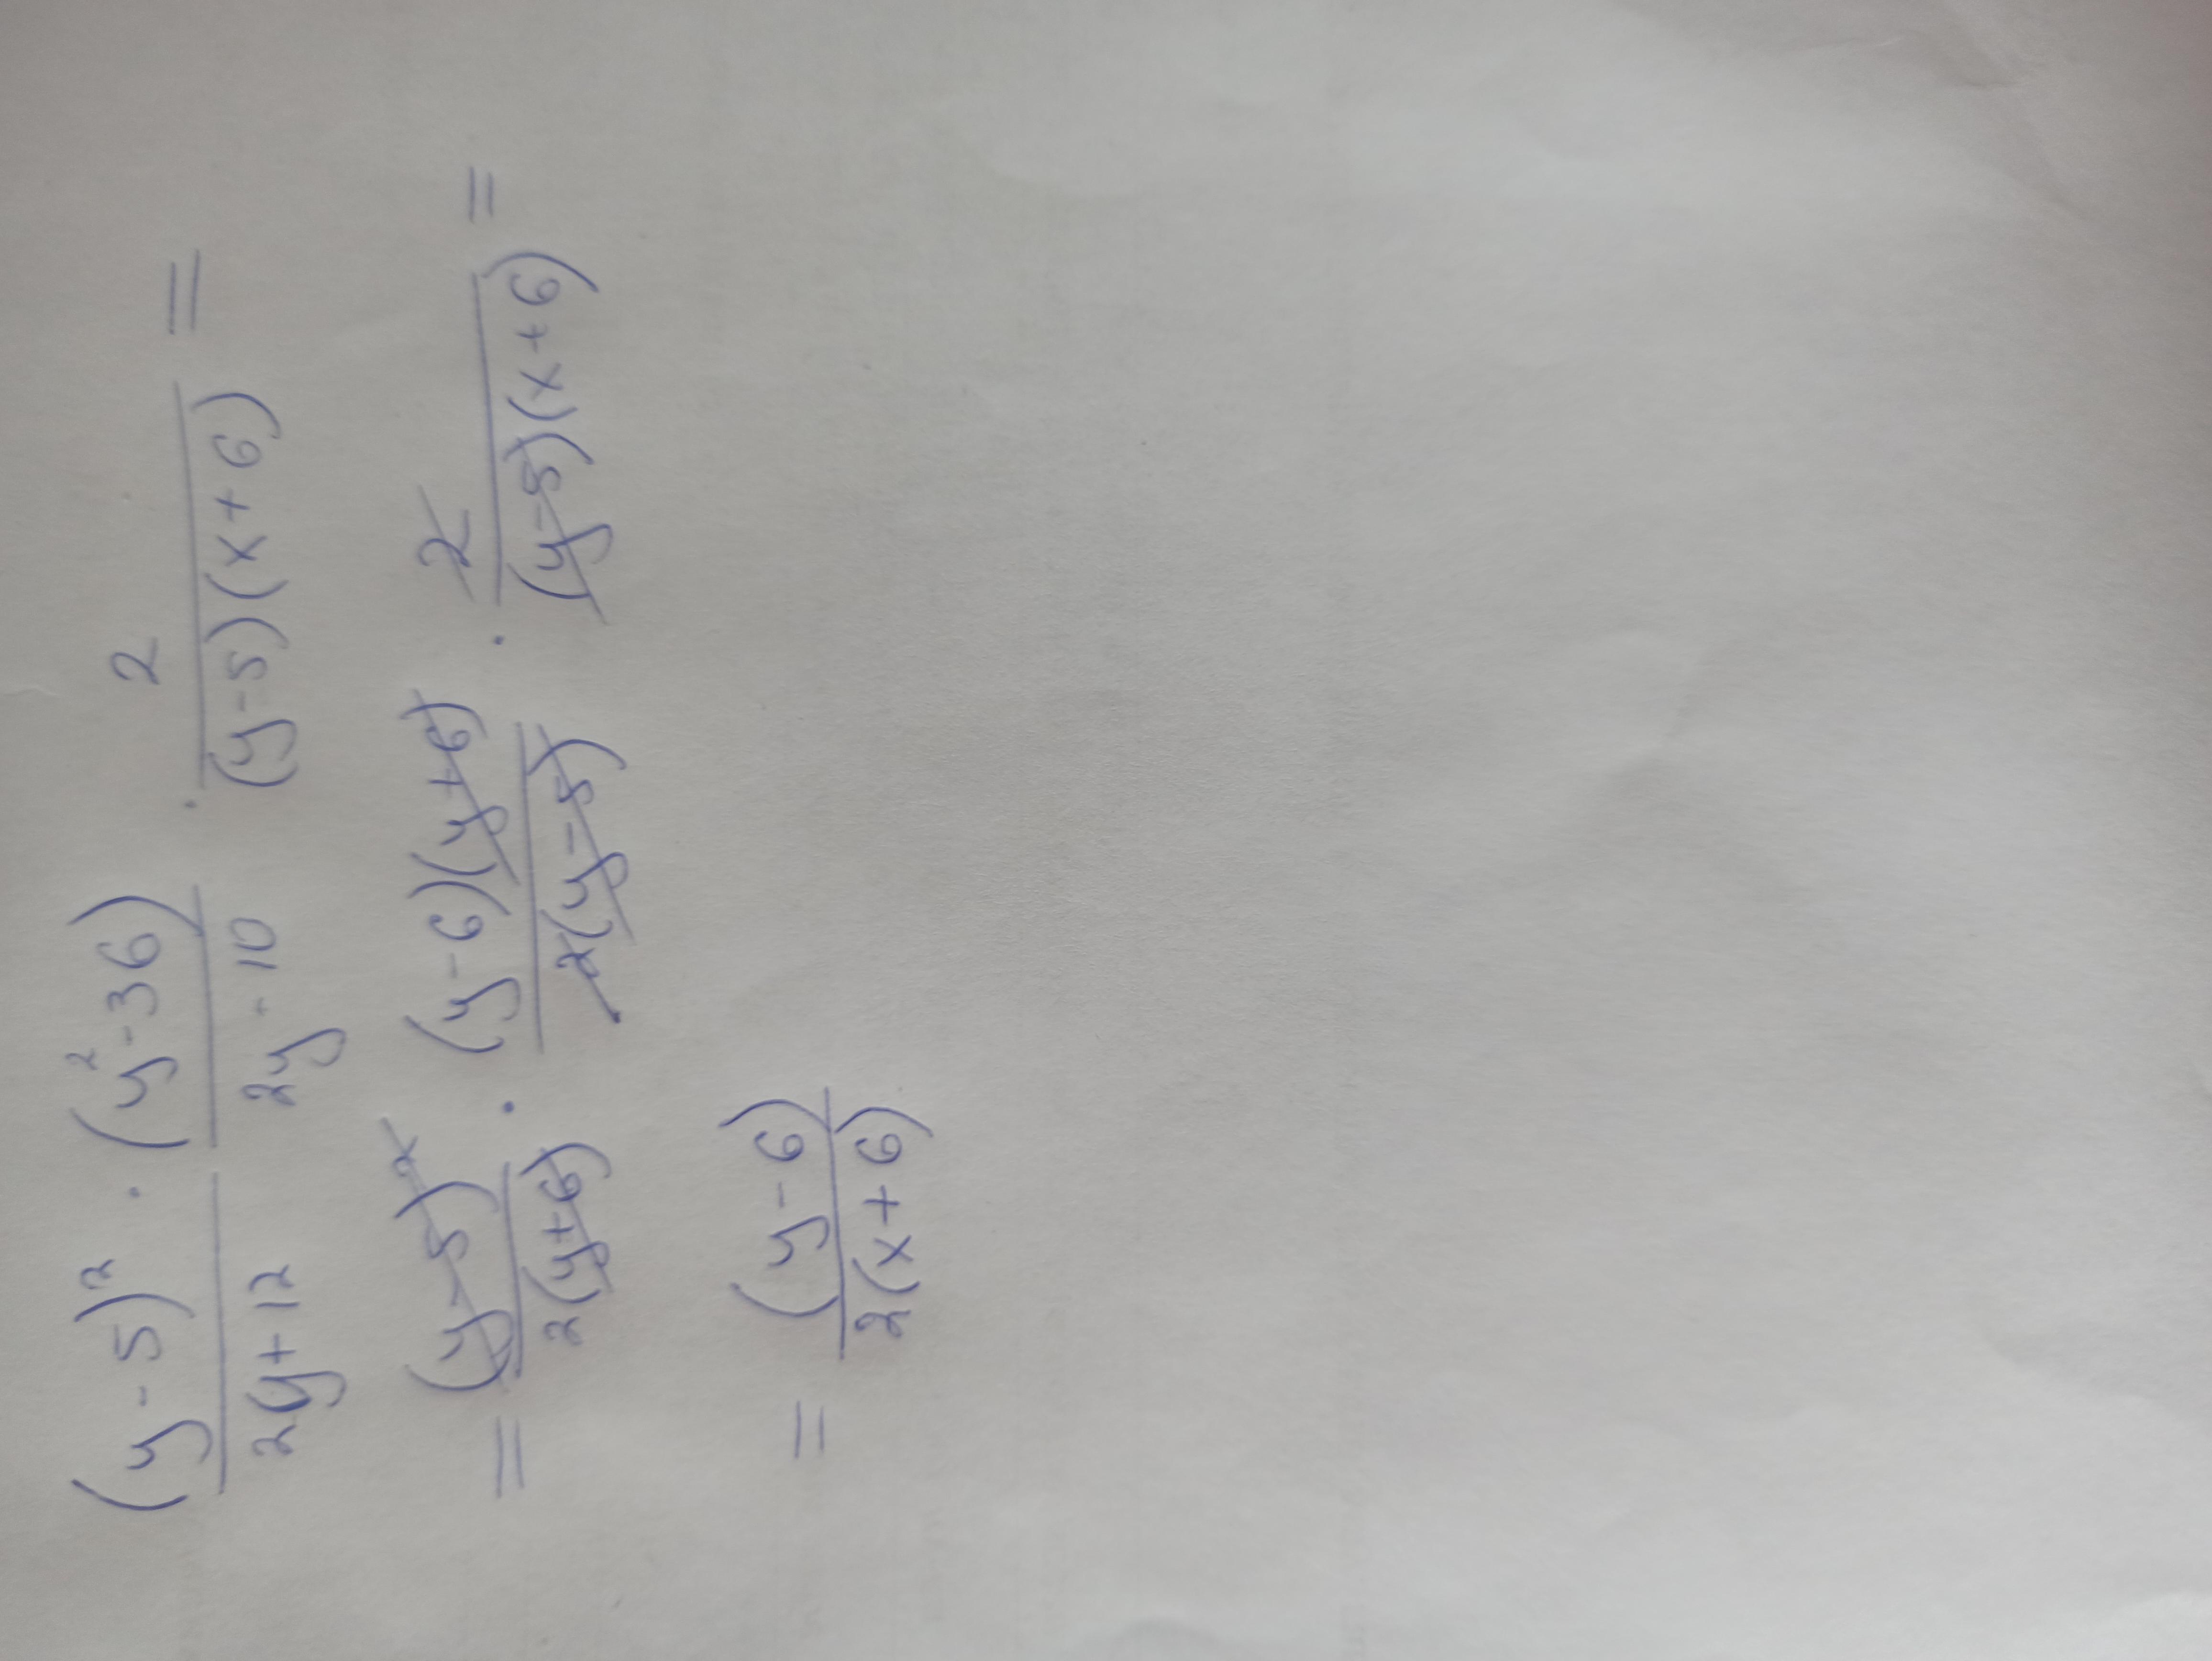 (y-5)²/2y+12 · (y²-36)/2y-10 · 2/(y-5)(x+6) =
= (y-5)²/2(y+6) · (y-6)(y+6)/2(y-5) · 2/(y-5)(x+6) =
= (y-6)/2(x+6)